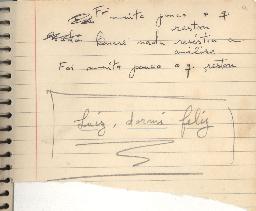 Foi muita pouca o q
restou
houve nada resistiu a
análise
Foi muita pouca o q restou
Luiz, dormi feliz